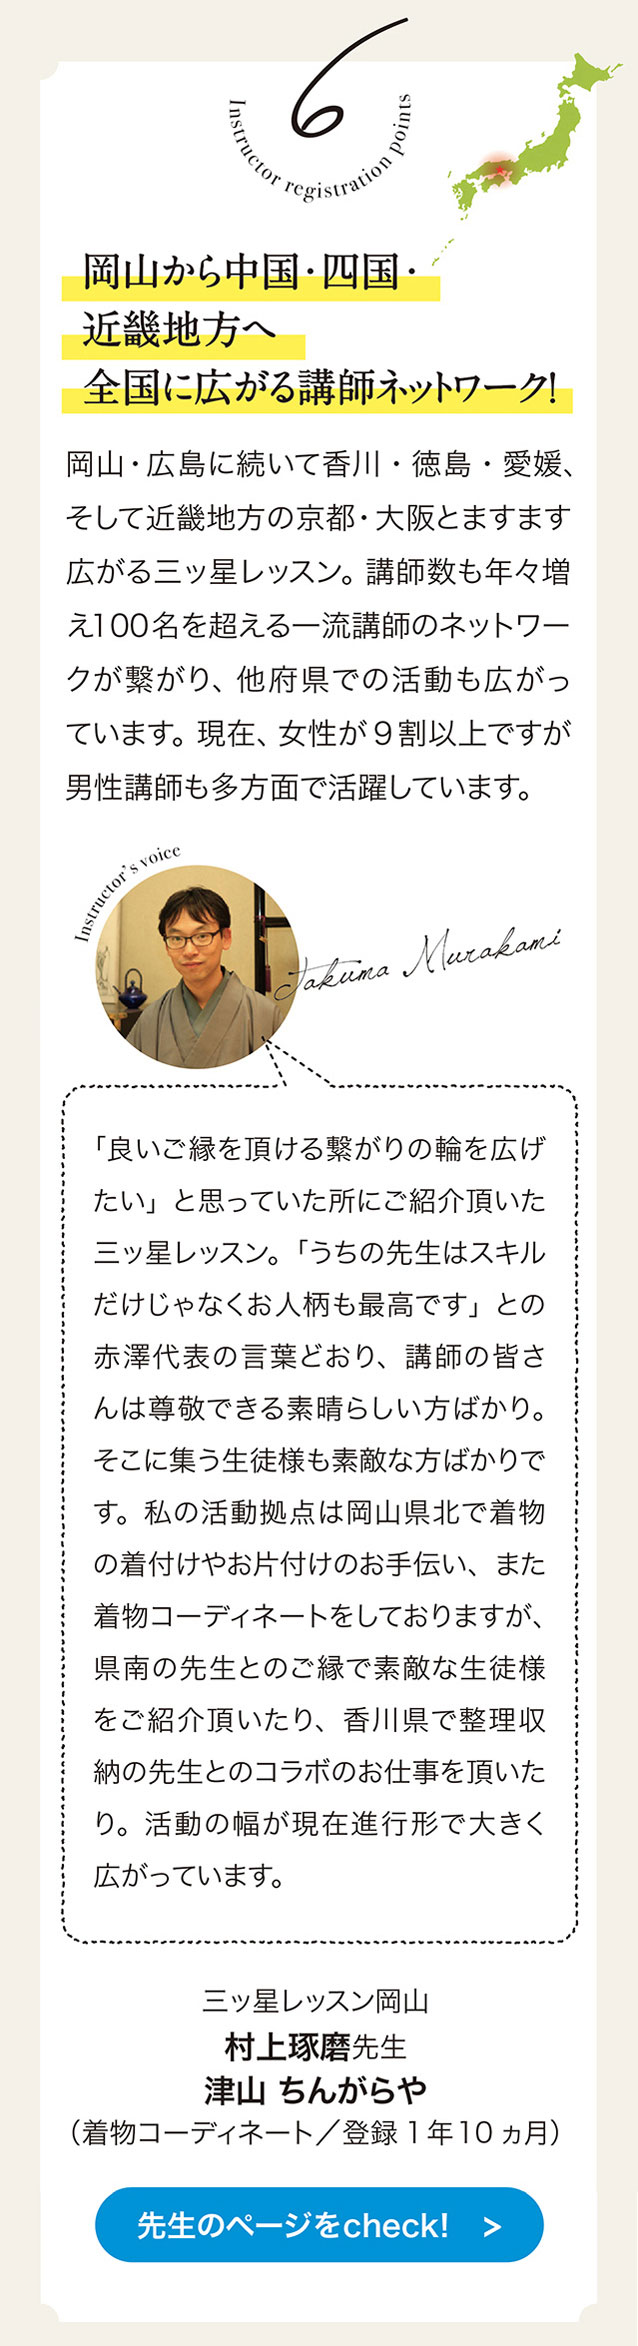 6
Instructor registration points
岡山から中国・四国・
近畿地方へ
全国に広がる講師ネットワーク!
岡山・広島に続いて香川・徳島・愛媛、
そして近畿地方の京都・大阪とますます
広がる三ッ星レッスン。講師数も年々増
え100名を超える一流講師のネットワー
クが繋がり、他府県での活動も広がっ
ています。現在、女性が9割以上ですが
男性講師も多方面で活躍しています。
Instructor's voice
Takuma Murakami
「良いご縁を頂ける繋がりの輪を広げ
たい」と思っていた所にご紹介頂いた
三ッ星レッスン。「うちの先生はスキル
だけじゃなくお人柄も最高です」との
赤澤代表の言葉どおり、講師の皆さ
んは尊敬できる素晴らしい方ばかり。
そこに集う生徒様も素敵な方ばかりで
す。私の活動拠点は岡山県北で着物
の着付けやお片付けのお手伝い、また
着物コーディネートをしておりますが、
県南の先生とのご縁で素敵な生徒様
をご紹介頂いたり、香川県で整理収
納の先生とのコラボのお仕事を頂いた
り。活動の幅が現在進行形で大きく
広がっています。
三ッ星レッスン岡山
村上琢磨先生
津山 ちんがらや
（着物コーディネート／登録1年10ヵ月）
先生のページをcheck! >